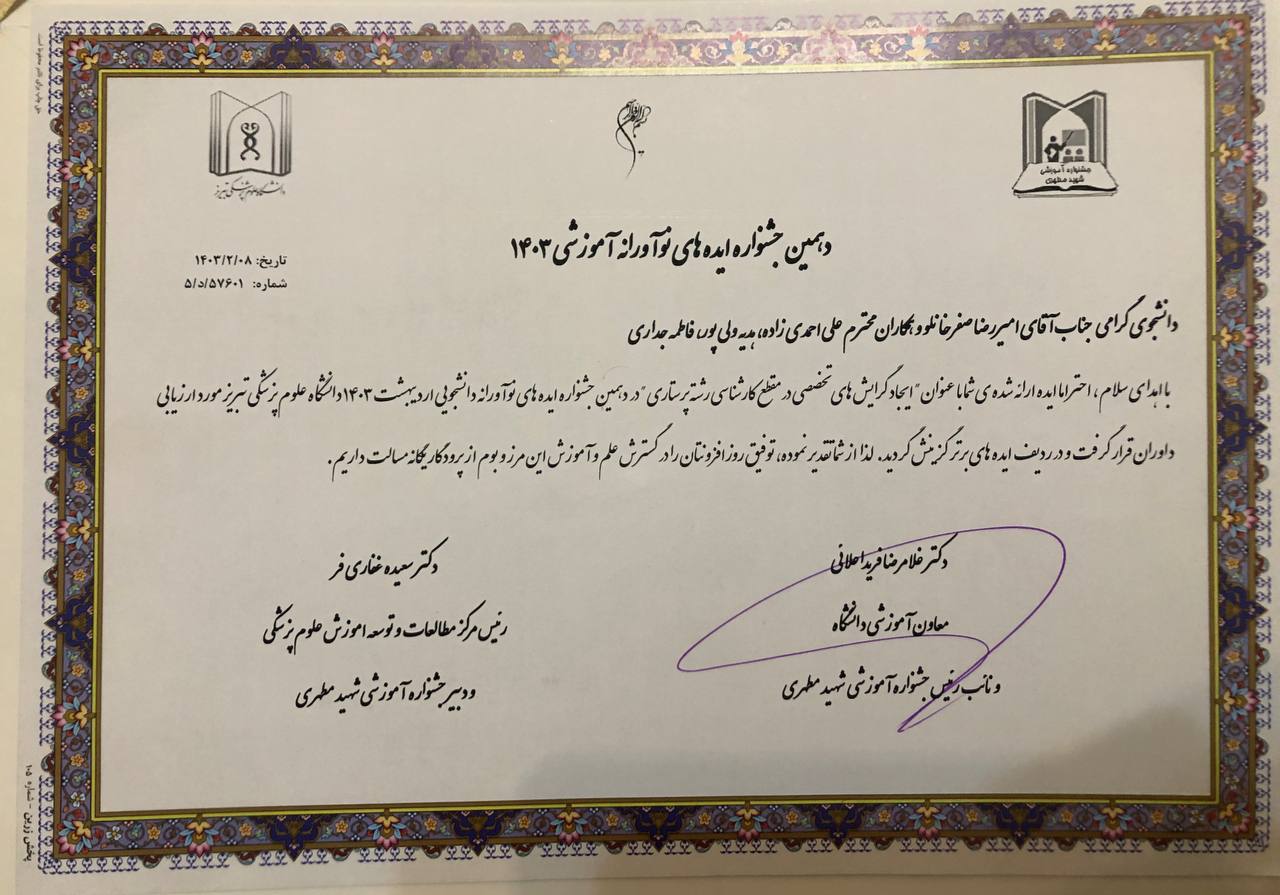 بسم الله الرحمن الرحیم
جشنواره آموزشی
شهید مطهری
دانشگاه علوم پزشکی تبریز
دهمین جشنواره ایده های نوآورانه آموزشی ۱۴۰۳
تاریخ: ۱۴۰۳/۲/۰۸
شماره: ۵/د/۵۷۶۰۱
دانشجوی گرامی جناب آقای امیررضا صفرخانلو و همکاران محترم علی احمدی زاده، هدیه ولی پور، فاطمه جداری
با اهدای سلام، احتراما ایده ارائه شده ی شما با عنوان "ایجاد گرایش های تخصصی در مقطع کارشناسی رشته پرستاری" در دهمین جشنواره ایده های نوآورانه دانشجویی اردیبهشت ۱۴۰۳ دانشگاه علوم پزشکی تبریز مورد ارزیابی
داوران قرار گرفت و در ردیف ایده های برتر گزینش گردید. لذا از شما تقدیر نموده، توفیق روز افزونتان را در گسترش علم و آموزش این مرز و بوم از پرودگار یگانه مسالت داریم.
دکتر غلامرضا فریداعلائی
معاون آموزشی دانشگاه
و نائب رئیس جشنواره آموزشی شهید مطهری
دکتر سعیده غفاری فر
رئیس مرکز مطالعات و توسعه اموزش علوم پزشکی
و دبیر جشنواره آموزشی شهید مطهری